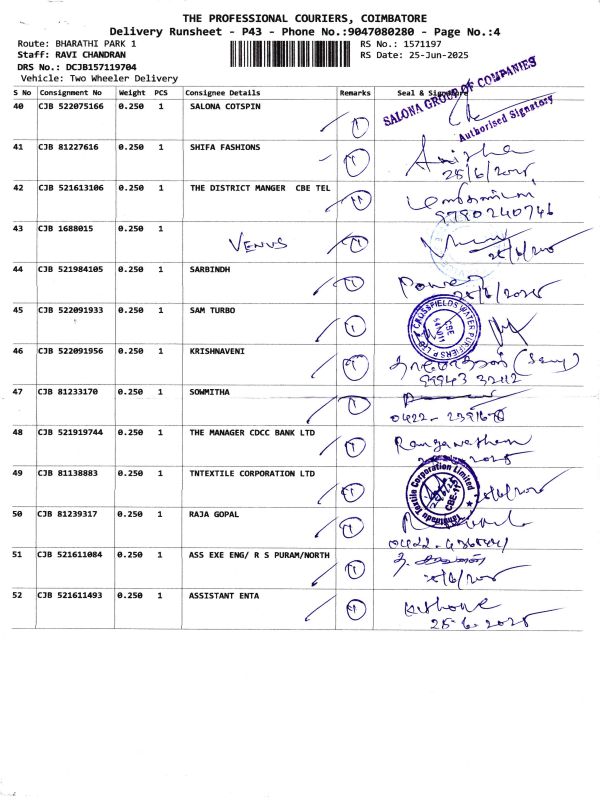 THE PROFESSIONAL COURIERS, COIMBATORE
Delivery Runsheet - P43 - Phone No.:9047080280 - Page No.:4
Route: BHARATHI PARK 1
RS No.: 1571197
Staff: RAVI CHANDRAN
RS Date: 25-Jun-2025
DRS No.: DCJB157119704
Vehicle: Two Wheeler Delivery
S No Consignment No Weight PCS Consignee Details Remarks Seal & Signature
40 CJB 522075166 0.250 1 SALONA COTSPIN
SALONA GROUP OF COMPANIES
Authorised Signatory
41 CJB 81227616 0.250 1 SHIFA FASHIONS
25/6/2025
42 CJB 521613106 0.250 1 THE DISTRICT MANGER CBE TEL
9790240746
43 CJB 1688015 0.250 1
VENUS
44 CJB 521984105 0.250 1 SARBINDH
25/6/2025
45 CJB 522091933 0.250 1 SAM TURBO
CROSSFIELDS WATER PURIFIERS P LTD
CBE
46 CJB 522091956 0.250 1 KRISHNAVENI
99943 32112
47 CJB 81233170 0.250 1 SOWMITHA
48 CJB 521919744 0.250 1 THE MANAGER CDCC BANK LTD
Ranganathan
49 CJB 81138883 0.250 1 TNTEXTILE CORPORATION LTD
Tamilnadu Textile Corporation Limited
CBE-11
50 CJB 81239317 0.250 1 RAJA GOPAL
51 CJB 521611084 0.250 1 ASS EXE ENG/ R S PURAM/NORTH
52 CJB 521611493 0.250 1 ASSISTANT ENTA
25-6-2025